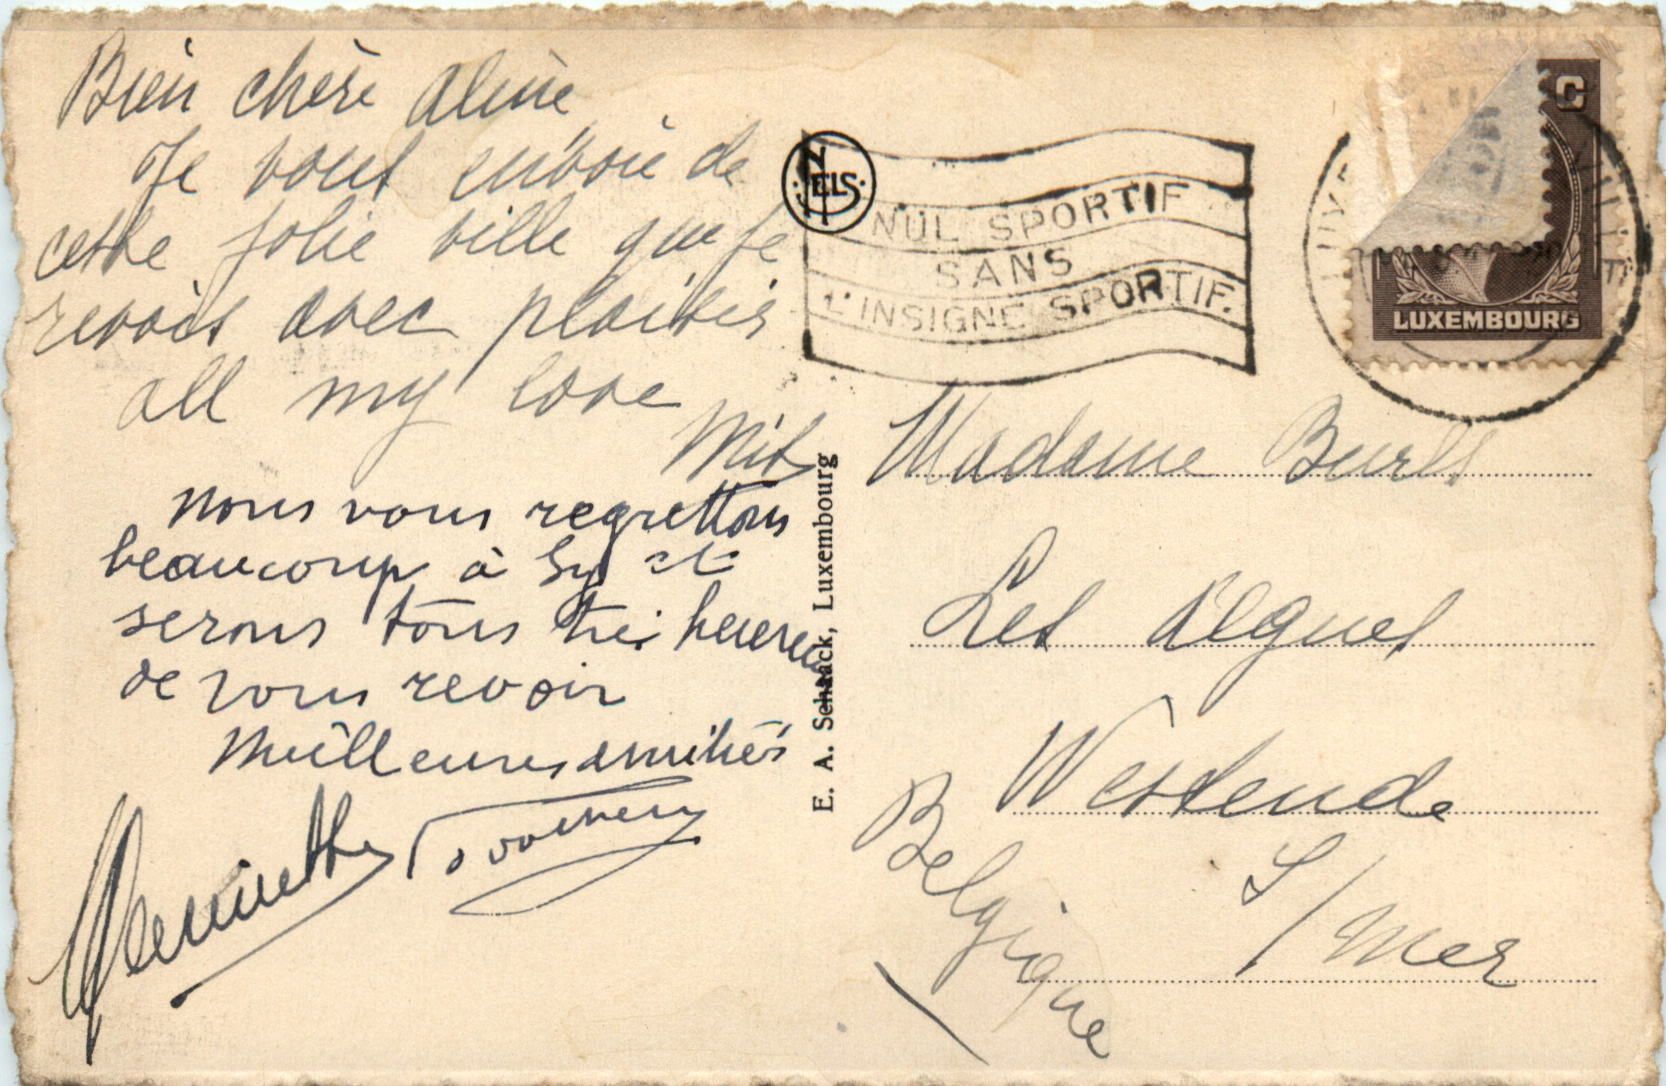 Bien chère Aline
Je vous envoie de
cette jolie ville que je
revois avec plaisir
all my love
nous vous regrettons
beaucoup à Sy et
serons tous très heureux
de vous revoir
Meilleures amitiés
NELS
NUL SPORTIF
SANS
L'INSIGNE SPORTIF.
C
LUXEMBOURG
E. A. Schaack, Luxembourg
Madame
Les Algues
Westende
S/Mer
Belgique